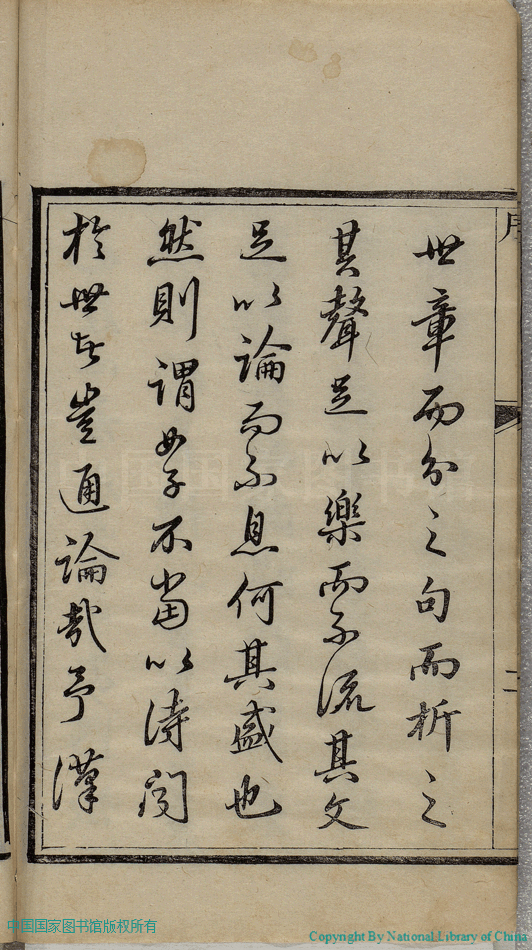 世章而分之句而析之
其聲足以樂而不流其文
足以論而不息何其盛也
然則謂女子不當以詩聞
於世者豈通論哉予漢
序
二
中国国家图书馆
中国国家图书馆版权所有
Copyright By National Library of China